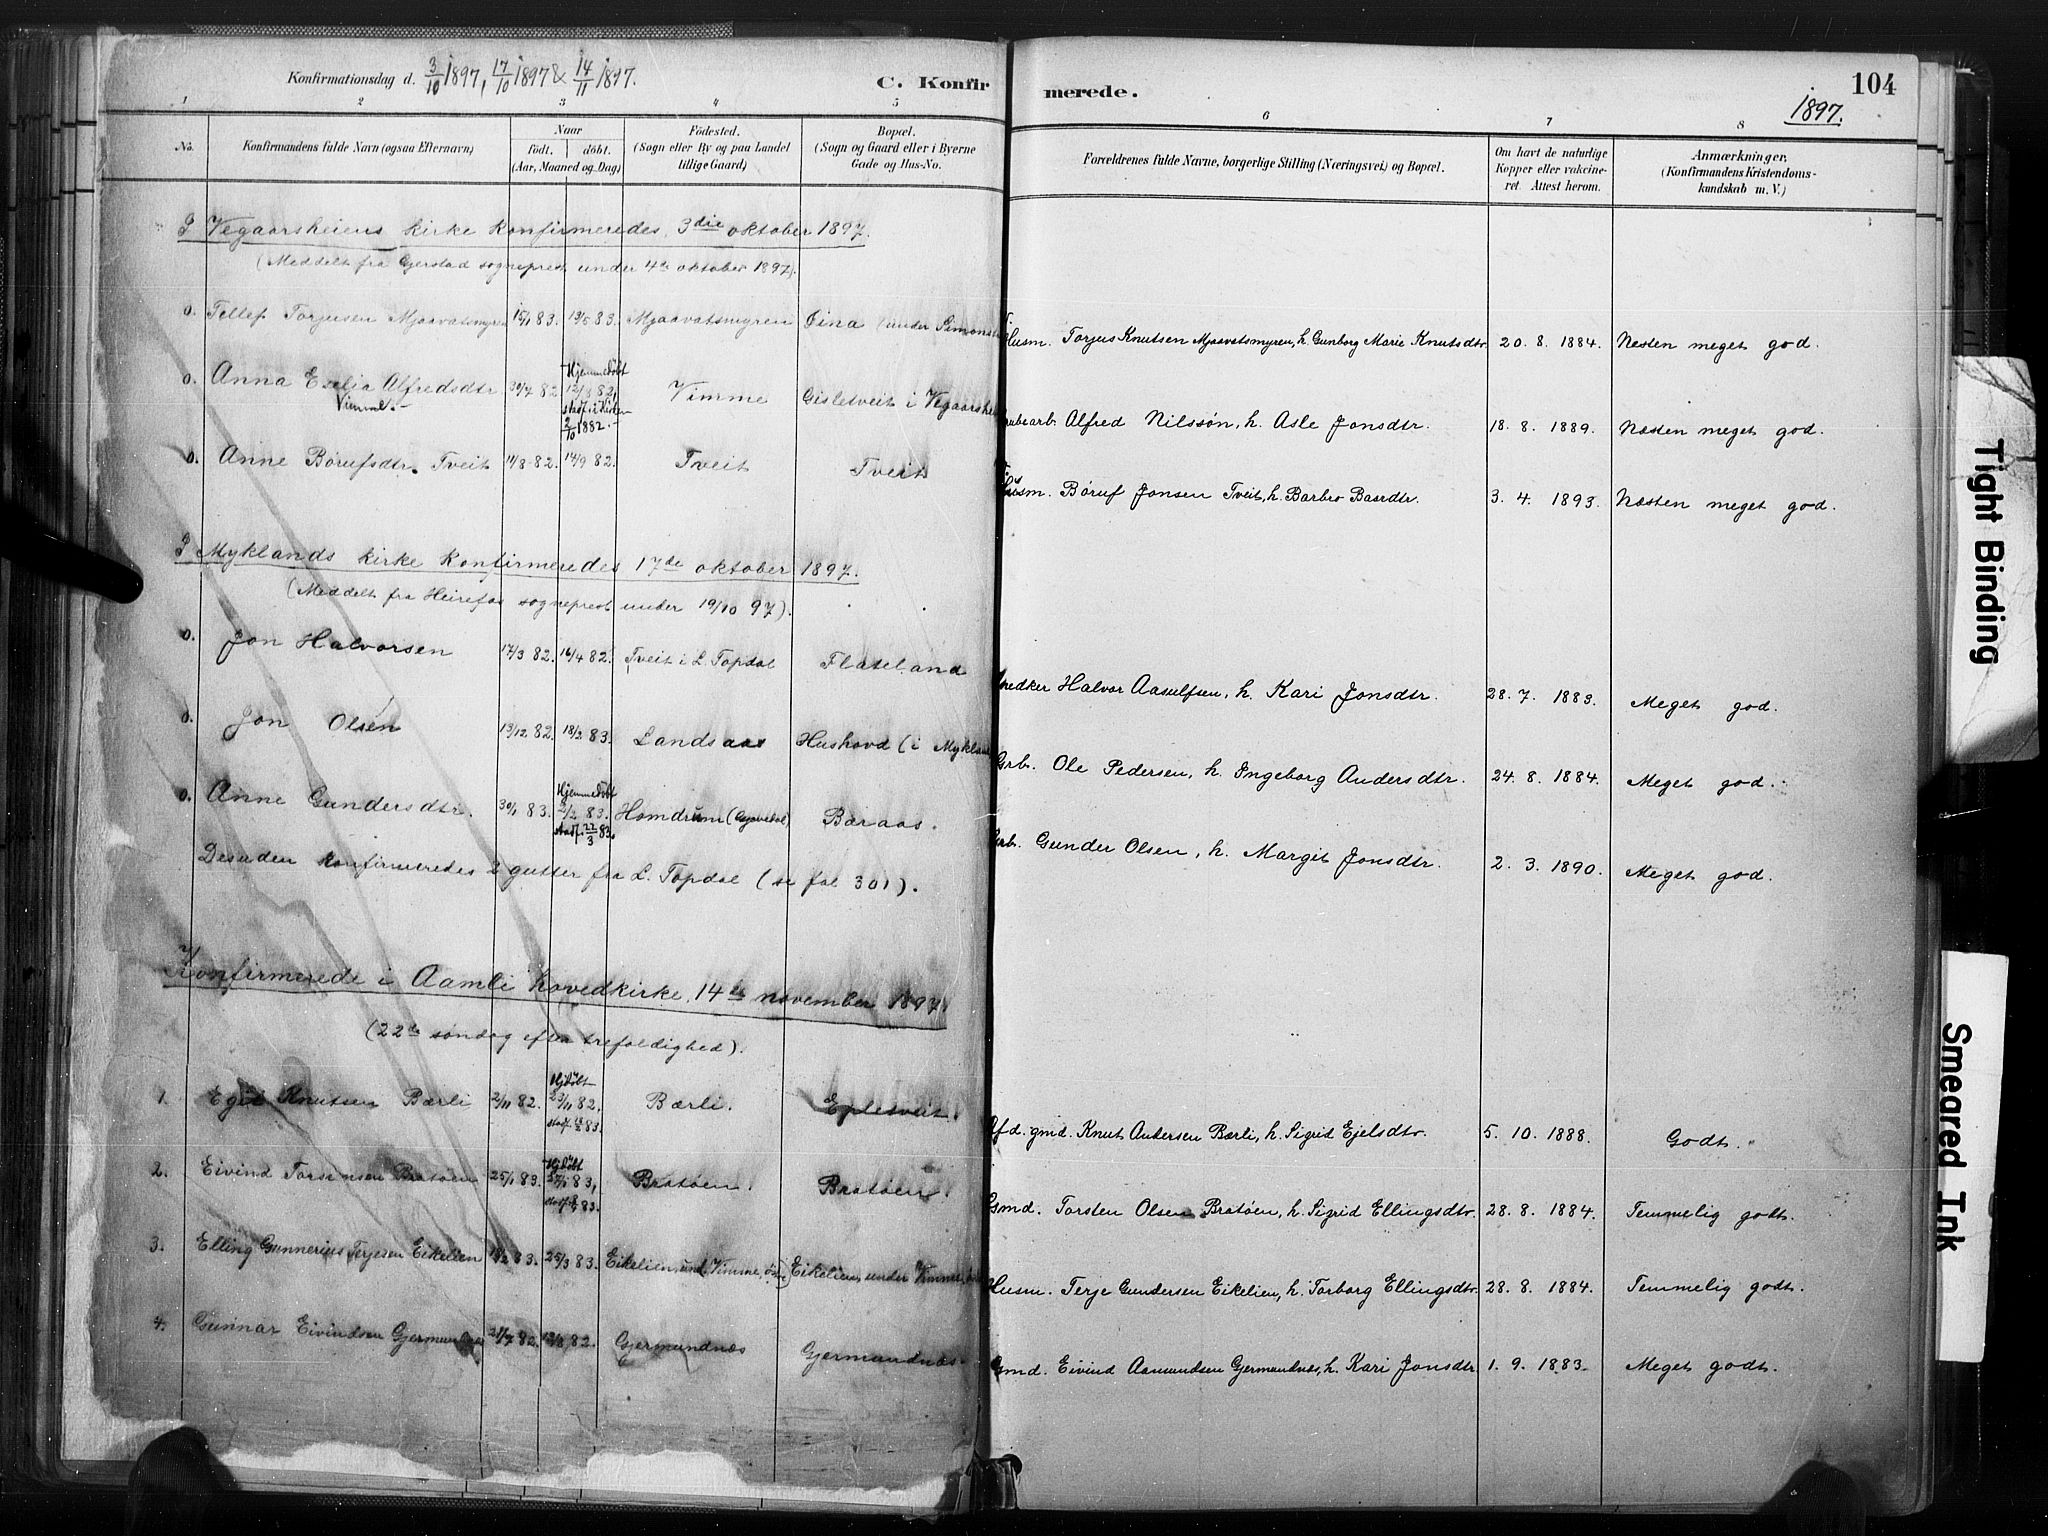 Konfirmationsdag d. 3/10 1897, 17/10 1897 & 14/11 1897.
C. Konfirmerede.
104
1897.
1 2 3 4 5 6 7 8
No.
Konfirmandens fulde Navn (ogsaa Efternavn)
Naar
födt. döbt.
(Aar, Maaned og Dag)
Födested.
(Sogn eller By og paa Landet
tillige Gaard)
Bopæl.
(Sogn og Gaard eller i Byerne
Gade og Hus-No.
Forældrenes fulde Navne, borgerlige Stilling (Næringsvei) og Bopæl.
Om havt de naturlige
Kopper eller vakcine-
ret. Attest herom.
Anmærkninger.
(Konfirmandens Kristendoms-
kundskab m. V.)
I Vegaarsheiens kirke konfirmeredes 3die oktober 1897.
(Meddelt fra Gjerstad sogneprest under 4de oktober 1897).
0. Tellef Torjusen Mjaavatsmyren 15/1 83. 13/5 83. Mjaavatsmyren (under Simonst Husm. Torjus Knutsen Mjaavatsmyren, h. Gunborg Marie Knutsdtr. 20. 8. 1884. Nesten meget god.
0. Anna Alfredsdtr Vimme. 30/7 82 Hjemmedöbt 82, stadf. i kirken 2/10 1882. Vimme Gisletveit i Vegaarshei Alfred Nilssøn, h. Asle Jonsdtr. 18. 8. 1889. Næsten meget god.
0. Anne Børufsdtr. Tveit 11/8 82. 14/9 82. Tveit Tveit Husm. Børuf Jonsen Tveit, h. Barbro Baardtr. 3. 4. 1893. Næsten meget god.
I Myklands kirke konfirmeredes 17de oktober 1897.
(Meddelt fra Heirefos sogneprest under 19/10 97).
0. Jon Halvorsen 17/3 82. 16/4 82. Tveit i L. Topdal Flateland Snedker Halvor Aasulfsen, h. Kari Jonsdtr. 28. 7. 1883. Meget god.
0. Jon Olsen 13/12 82. 18/2 83. Landsaas Hushovd (i Mykland Grb. Ole Pedersen, h. Ingeborg Andersdtr. 24. 8. 1884. Meget god.
0. Anne Gundersdtr. 30/1 83. Hjemmedöbt 2/2 83. stadf. 22/3 83. Homdrum (Gjøvedal) Baraas. Grb. Gunder Olsen, h. Margit Jonsdtr. 2. 3. 1890. Meget god.
Desuden konfirmeredes 2 gutter fra L. Topdal (se fol 301).
Konfirmerede i Aamli hovedkirke, 14de november 1897
(22de søndag efter trefoldighed).
1. Egil Knutsen Bærli 2/11 82. Hjdöbt /11 82. stadf. 83. Bærli. Epletveit Gfd. gmd. Knut Andersen Bærli, h. Sigrid Ejelsdtr. 5. 10. 1888. Godt.
2. Eivind Torstensen Bratøen 25/1 83. Hjdöbt 83, stadf. 83. Bratøen. Bratøen Gmd. Torsten Olsen Bratøen, h. Sigrid Ellingsdtr. 28. 8. 1884. Temmelig godt.
3. Elling Gunnerius Terjesen Eikelien 18/2 83. 25/3 83. Eikelien, und. Vimme, Eikelien, under Vimme, Husm. Terje Gundersen Eikelien, h. Torborg Ellingsdtr. 28. 8. 1884. Temmelig godt.
4. Gunnar Eivindsen Gjermundnes 21/7 82. 13/8 82. Gjermundnæs Gjermundnæs. Gmd. Eivind Aamundsen Gjermundnæs, h. Kari Jonsdtr. 1. 9. 1883. Meget godt.
Tight Binding
Smeared Ink